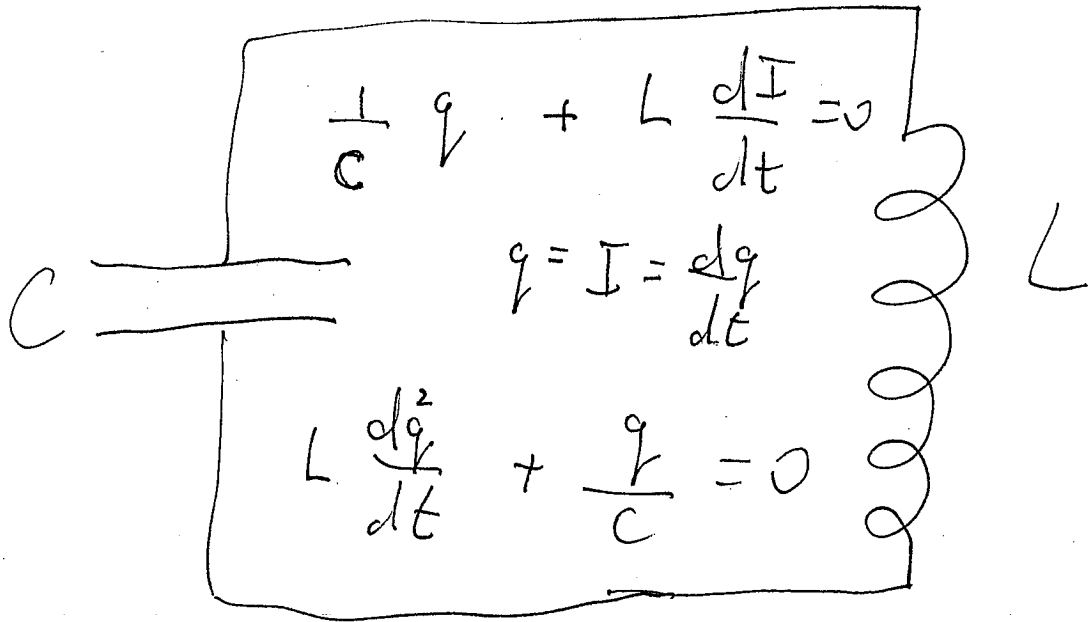 1/C q + L dI/dt = 0
q = I = dq/dt
C
L
L dq²/dt + q/C = 0